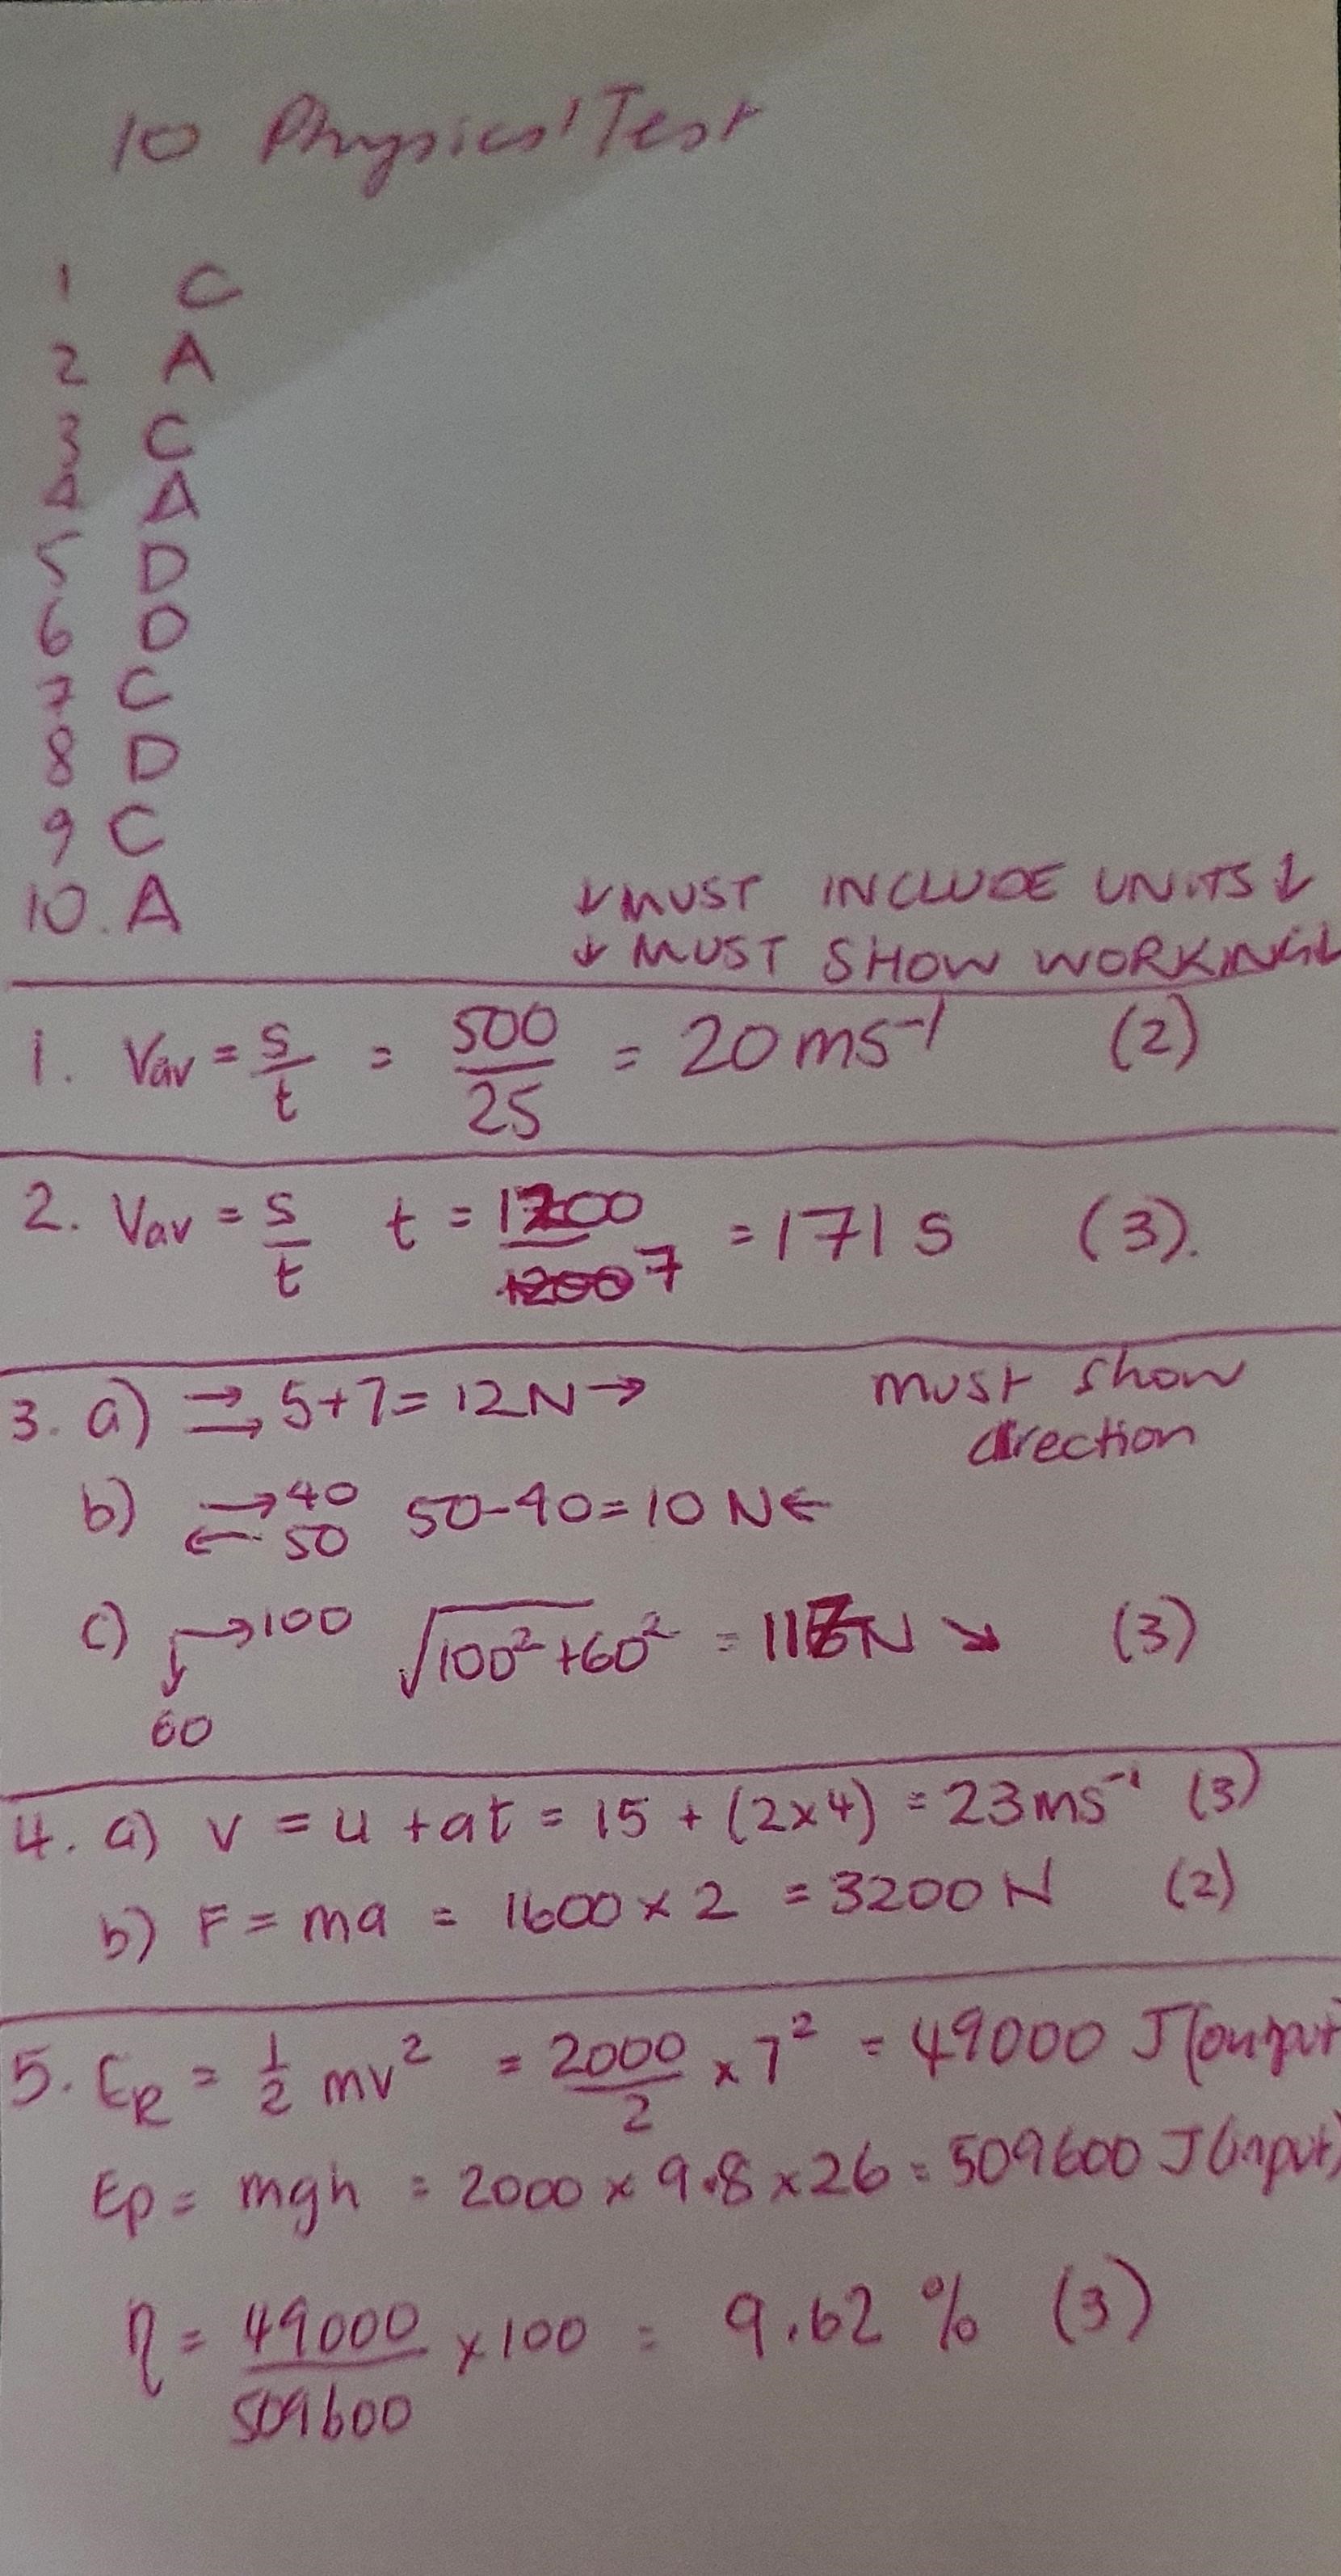 10 Physics Test
1 C
2 A
3 C
4 A
5 D
6 D
7 C
8 D
9 C
10. A
↓ MUST INCLUDE UNITS ↓
↓ MUST SHOW WORKING ↓
1. Vav = s/t = 500/25 = 20 ms⁻¹ (2)
2. Vav = s/t t = 1200/7 = 171 s (3).
3. a) ⇉ 5+7 = 12N → must show
direction
b) → 40 ← 50 50-40 = 10 N ←
c) → 100 ↓ 60 √100²+60² = 117N ↘ (3)
4. a) v = u + at = 15 + (2×4) = 23 ms⁻¹ (3)
b) F = ma = 1600 × 2 = 3200 N (2)
5. EK = 1/2 mv² = 2000/2 × 7² = 49000 J (output
Ep = mgh = 2000 × 9.8 × 26 = 509600 J (input)
η = 49000/509600 × 100 = 9.62 % (3)